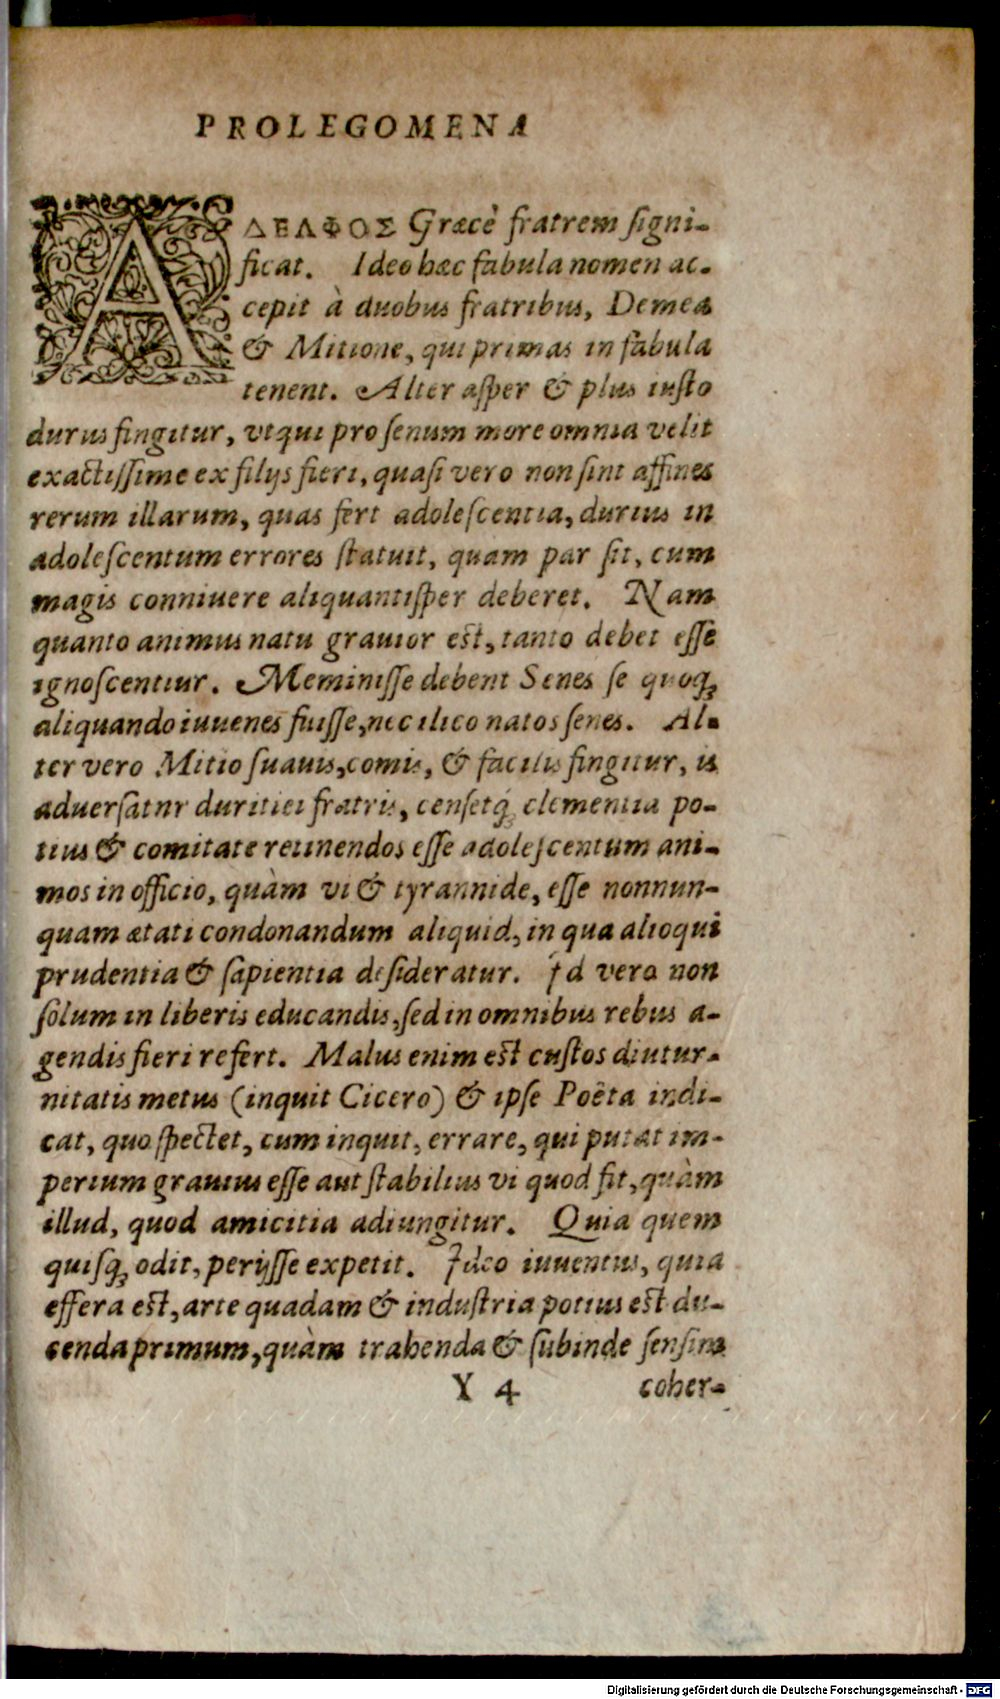 PROLEGOMENA
ΑΔΕΛΦΟΣ Græcè fratrem signi-
ficat. Ideo hæc fabula nomen ac-
cepit à duobus fratribus, Demea
& Mitione, qui primas in fabula
tenent. Alter asper & plus iusto
durus fingitur, vtqui pro senum more omnia velit
exactissime ex filijs fieri, quasi vero non sint affines
rerum illarum, quas fert adolescentia, durius in
adolescentum errores statuit, quàm par sit, cum
magis conniuere aliquantisper deberet. Nam
quanto animus natu grauior est, tanto debet esse
ignoscentiur. Meminisse debent Senes se quoq́;
aliquando iuuenes fuisse, nec ilico natos senes. Al-
ter vero Mitio suauis, comis, & facilis fingitur, is
aduersatnr duritiei fratris, censetq́; clementia po-
tius & comitate retinendos esse adolescentum ani-
mos in officio, quàm vi & tyrannide, esse nonnun-
quam ætati condonandum aliquid, in qua alioqui
prudentia & sapientia desideratur. Id vero non
solum in liberis educandis, sed in omnibus rebus a-
gendis fieri refert. Malus enim est custos diutur-
nitatis metus (inquit Cicero) & ipse Poëta indi-
cat, quo spectet, cum inquit, errare, qui putat im-
perium grauius esse aut stabilius vi quod fit, quàm
illud, quod amicitia adiungitur. Quia quem
quisq; odit, perijsse expetit. Ideo iuuentus, quia
effera est, arte quadam & industria potius est du-
cenda primum, quàm trahenda & subinde sensim
Y 4 coher-
Digitalisierung gefördert durch die Deutsche Forschungsgemeinschaft - DFG